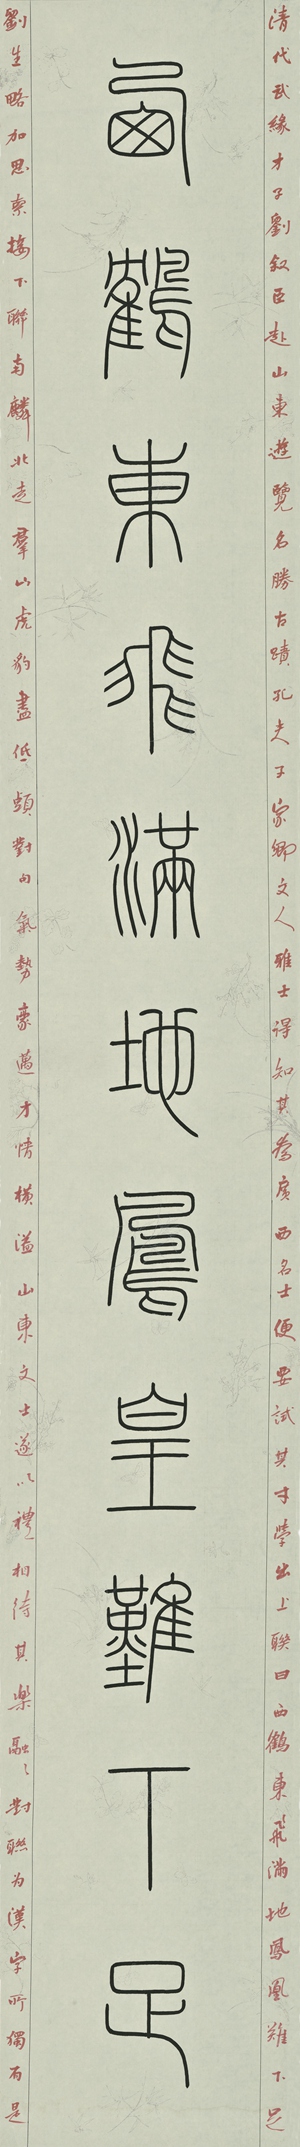 清代武緣才子劉叙臣赴山東遊覽名勝古蹟孔夫子家鄉文人雅士得知其為廣西名士便要試其才學出上聯曰西鶴東飛滿地鳳凰難下足
西鶴東飛滿地鳳皇難下足
劉生略加思索接下聯南麟北走群山虎豹盡低頭對句氣勢豪邁才情橫溢山東文士遂以禮相待其樂融々對聯为漢字所獨有是